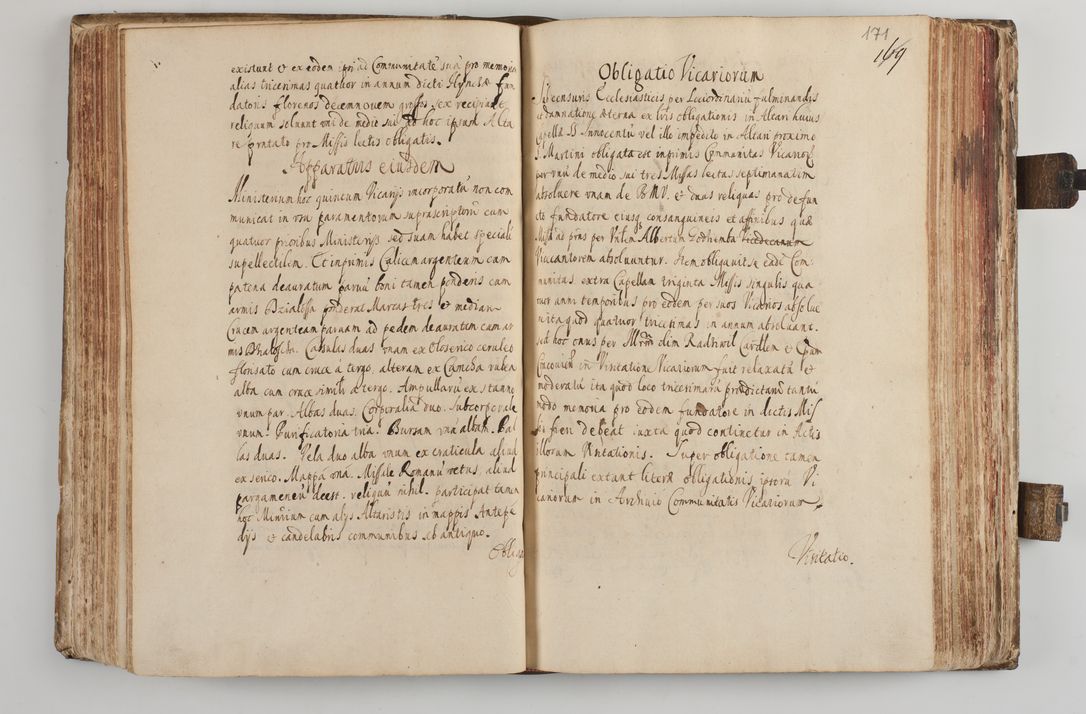 existunt et ex eodem ipsi ad Com̄unitatē suā pro memoria
alias tricesimas quatuor in annum dicti Hynczæ fun
datoris florenos decemnouem grossos sex recipiunt
reliquum soluunt vni de medio sui ad hoc ipsum Alta
re pro missis lectis obligatis.
Apparatus eiusdem
Ministerium hoc quintum Vicarijs incorporatū non com
municat in vsu paramentorum suprascriptorū cum
quatuor prioribus Ministerijs sed suam habet speciali
supellectilem. Et inprimis Calicem argenteum cum
patena deauratum parvū boni tamen ponderis cum
armis ponderat Marcas tres et mediam
Crucem argenteam paruam ad pedem deauratam cum ar
mis Casulas duas vnam ex Oloserico ceruleo
florisato cum cruce à tergo, alteram ex Camcha rubea
alba cum cruce simili à tergo. Ampullarū ex stanno
vnum par. Albas duas. Corporalia duo. Subcorporale
vnum. Purificatoria tria. Bursam vnā albam. Pal
las duas. Vela duo alba vnum ex craticula aliud
ex serico. Mappa vna. Missale Romanū vetus, aliud
pargameneū deest. reliquū nihil. participat tamen
hoc Min̄rium cum alys Altaristis in mappis Antepe
dijs et candelabris communibus ab antiquo.
Obliga
171
169
Obligatio Vicariorum
Sub censuris Ecclesiasticis per Loci ordinariū fulminandis
et damnatione æterna ex vi obligationis in Altari huius
Capellæ SS Innocentū vel illo impedito in Altari proximo
S. Martini obligata est inprimis Communitas Vicarior̄
per vnū de medio sui tres Missas lectas septimanatim
absoluere vnam de BMV. et duas reliquas pro defun
cto fundatore eiusq consanguineis et affinibus quæ
Missæ ad prn̄s per Vn̄lem Albertum Godzienta Vicedecanum
Viucantorem absoluuntur. Item obligauit se eadē Com
munitas extra Capellam triginta Missis singulis qua
tuor anni temporibus pro eodem per suos Vicarios absolue
re ita quod quatuor tricesimas in annum absoluant.
sed hoc onus per Illr̄m̄ olim Radziwil Cardlem et Epum
Cracouien̄ in Visitatione Vicariorum fuit relaxatū et
moderatū ita quod loco tricesimarū prædictarū tantū
modo memoria pro eodem fundatore in dictis Mis
sis fieri debeat iuxta quod continetur in Actis
illorum Visitationis. Super obligatione tamen
principali extant literæ obligationis ipsorū Vi
cariorum in Archiuio Communitatis Vicariorum.
Visitatio.